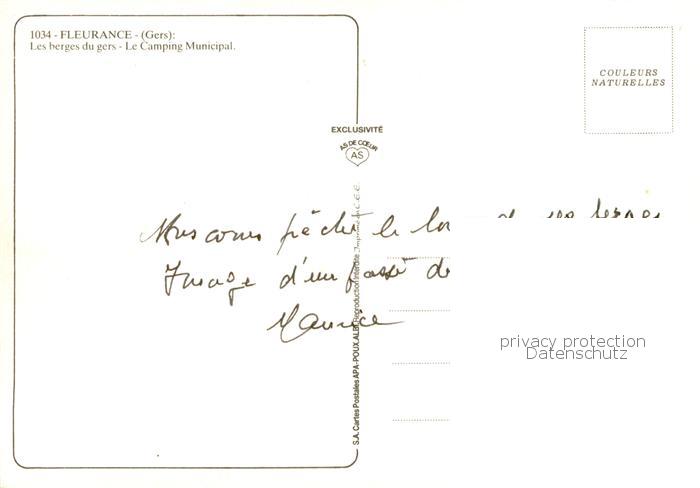 1034 - FLEURANCE - (Gers):
Les berges du gers - Le Camping Municipal.
COULEURS
NATURELLES
EXCLUSIVITÉ
AS DE CŒUR
AS
S.A. Cartes Postales APA-POUX, ALBI Reproduction interdite Imprimé en C.E.E.
Nous avons pêché le lon de ses berges
Image d'un passé de
Maurice
privacy protection
Datenschutz